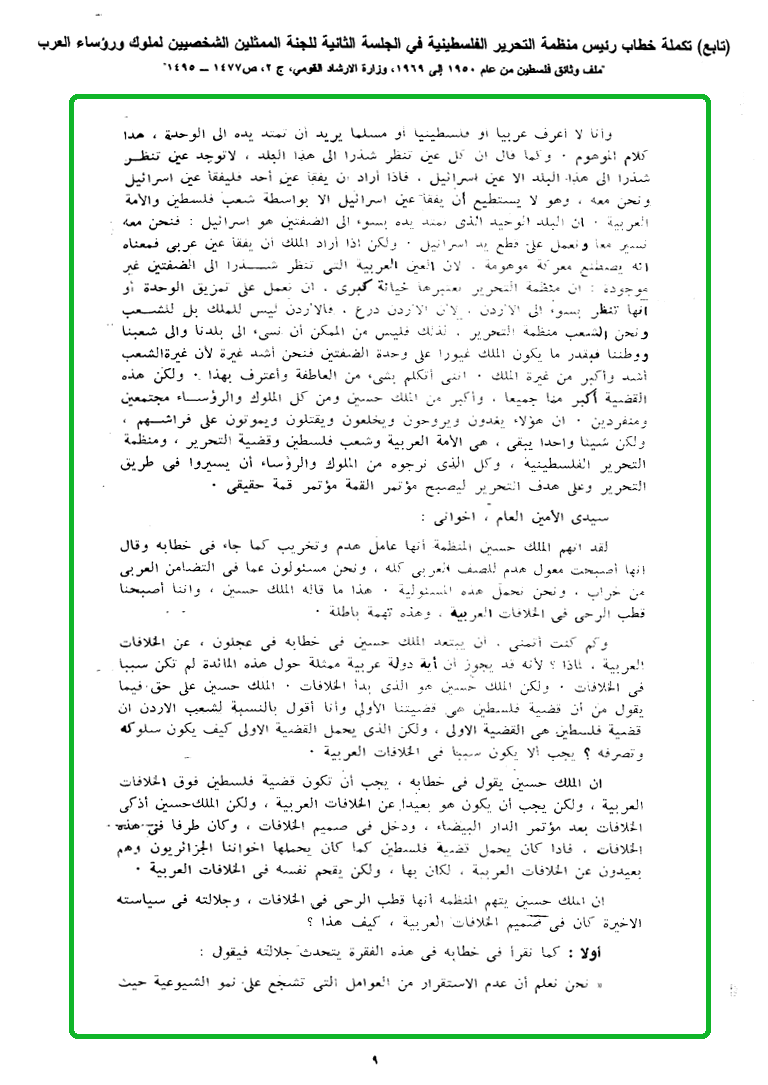 (تابع) تكملة خطاب رئيس منظمة التحرير الفلسطينية في الجلسة الثانية للجنة الممثلين الشخصيين لملوك ورؤساء العرب
"ملف وثائق فلسطين من عام ١٩٥٠ إلى ١٩٦٩، وزارة الارشاد القومي، ج ٢، ص١٤٧٧ – ١٤٩٥"
وأنا لا أعرف عربيا او فلسطينيا أو مسلما يريد أن تمتد يده الى الوحدة ، هذا
كلام الموهوم ٠ وكما قال ان كل عين تنظر شذرا الى هذا البلد ، لاتوجد عين تنظر
شذرا الى هذا البلد الا عين اسرائيل ٠ فاذا أراد ان يفقأ عين أحد فليفقأ عين اسرائيل
ونحن معه ، وهو لا يستطيع أن يفقأ عين اسرائيل الا بواسطة شعب فلسطين والأمة
العربية ٠ ان البلد الوحيد الذى تمتد يده بسوء الى الضفتين هو اسرائيل : فنحن معه
نسير معا ونعمل على قطع يد اسرائيل ٠ ولكن اذا أراد الملك أن يفقأ عين عربى فمعناه
انه يصطنع معركة موهومة ٠ لان العين العربية التى تنظر شذرا الى الضفتين غير
موجودة : ان منظمة التحرير تعتبرها خيانة كبرى ٠ ان نعمل على تمزيق الوحدة أو
انها تنظر بسوء الى الأردن ٠ لان الاردن درع ٠ فالاردن ليس للملك بل للشعب
ونحن الشعب منظمة التحرير ٠ لذلك فليس من الممكن أن نسىء الى بلدنا والى شعبنا
ووطننا فبقدر ما يكون الملك غيورا على وحدة الضفتين فنحن أشد غيرة لأن غيرةالشعب
أشد وأكبر من غيرة الملك ٠ اننى أتكلم بشىء من العاطفة وأعترف بهذا ٠ ولكن هذه
القضية أكبر منا جميعا ٠ وأكبر من الملك حسين ومن كل الملوك والرؤساء مجتمعين
ومنفردين ٠ ان هؤلاء يغدون ويروحون ويخلعون ويقتلون ويموتون على فراشهم ،
ولكن شيئا واحدا يبقى ، هى الأمة العربية وشعب فلسطين وقضية التحرير ، ومنظمة
التحرير الفلسطينية ، وكل الذى نرجوه من الملوك والرؤساء أن يسيروا فى طريق
التحرير وعلى هدف التحرير ليصبح مؤتمر القمة مؤتمر قمة حقيقى ٠
سيدى الأمين العام ، اخوانى :
لقد اتهم الملك حسين المنظمة أنها عامل هدم وتخريب كما جاء فى خطابه وقال
انها أصبحت معول هدم للصف العربى كله ، ونحن مسئولون عما فى التضامن العربى
من خراب ٠ ونحن نحمل هذه المسئولية ٠ هذا ما قاله الملك حسين ، واننا أصبحنا
قطب الرحى فى الخلافات العربية ٠ وهذه تهمة باطلة ٠
وكم كنت أتمنى ٠ أن يبتعد الملك حسين فى خطابه فى عجلون ، عن الخلافات
العربية ٠ لماذا ؟ لأنه قد يجوز أن أية دولة عربية ممثلة حول هذه المائدة لم تكن سببا
فى الخلافات ٠ ولكن الملك حسين هو الذى بدأ الخلافات ٠ الملك حسين على حق فيما
يقول من أن قضية فلسطين هى قضيتنا الأولى وأنا أقول بالنسبة لشعب الاردن ان
قضية فلسطين هى القضية الاولى ، ولكن الذى يحمل القضية الاولى كيف يكون سلوكه
وتصرفه ؟ يجب ألا يكون سببا فى الخلافات العربية ٠
ان الملك حسين يقول فى خطابه ، يجب أن تكون قضية فلسطين فوق الخلافات
العربية ، ولكن يجب أن يكون هو بعيدا عن الخلافات العربية ، ولكن الملك حسين أذكى
الخلافات بعد مؤتمر الدار البيضاء ، ودخل فى صميم الخلافات ، وكان طرفا فى هذه
الخلافات ٠ فاذا كان يحمل قضية فلسطين كما كان يحملها اخواننا الجزائريون وهم
بعيدون عن الخلافات العربية ، لكان بها ، ولكن يقحم نفسه فى الخلافات العربية ٠
ان الملك حسين يتهم المنظمه أنها قطب الرحى فى الخلافات ، وجلالته فى سياسته
الاخيرة كان فى صميم الخلافات العربية ، كيف هذا ؟
أولا : كما نقرأ فى خطابه فى هذه الفقرة يتحدث جلالته فيقول :
« نحن نعلم أن عدم الاستقرار من العوامل التى تشجع على نمو الشيوعية حيث
٩